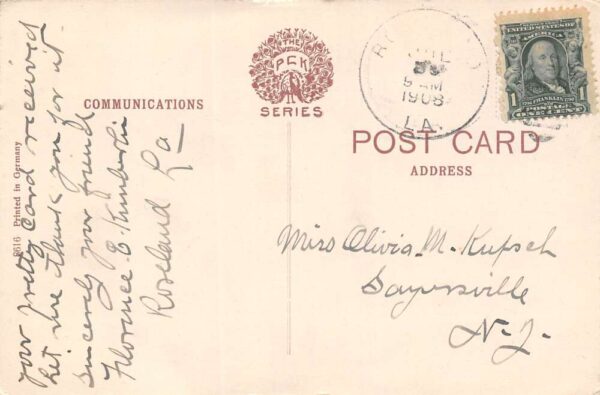 your pretty card received
Let me thank you for it.
Sincerely your friend
Florence E
Roseland La
COMMUNICATIONS
8616 Printed in Germany
THE
P C K
SERIES
JUL
8 AM
1908
LA.
UNITED STATES OF
AMERICA
1 FRANKLIN 1
POSTAGE
ONE CENT
POST CARD
ADDRESS
Miss Olivia M. Kupsch
Sayersville
N. J.